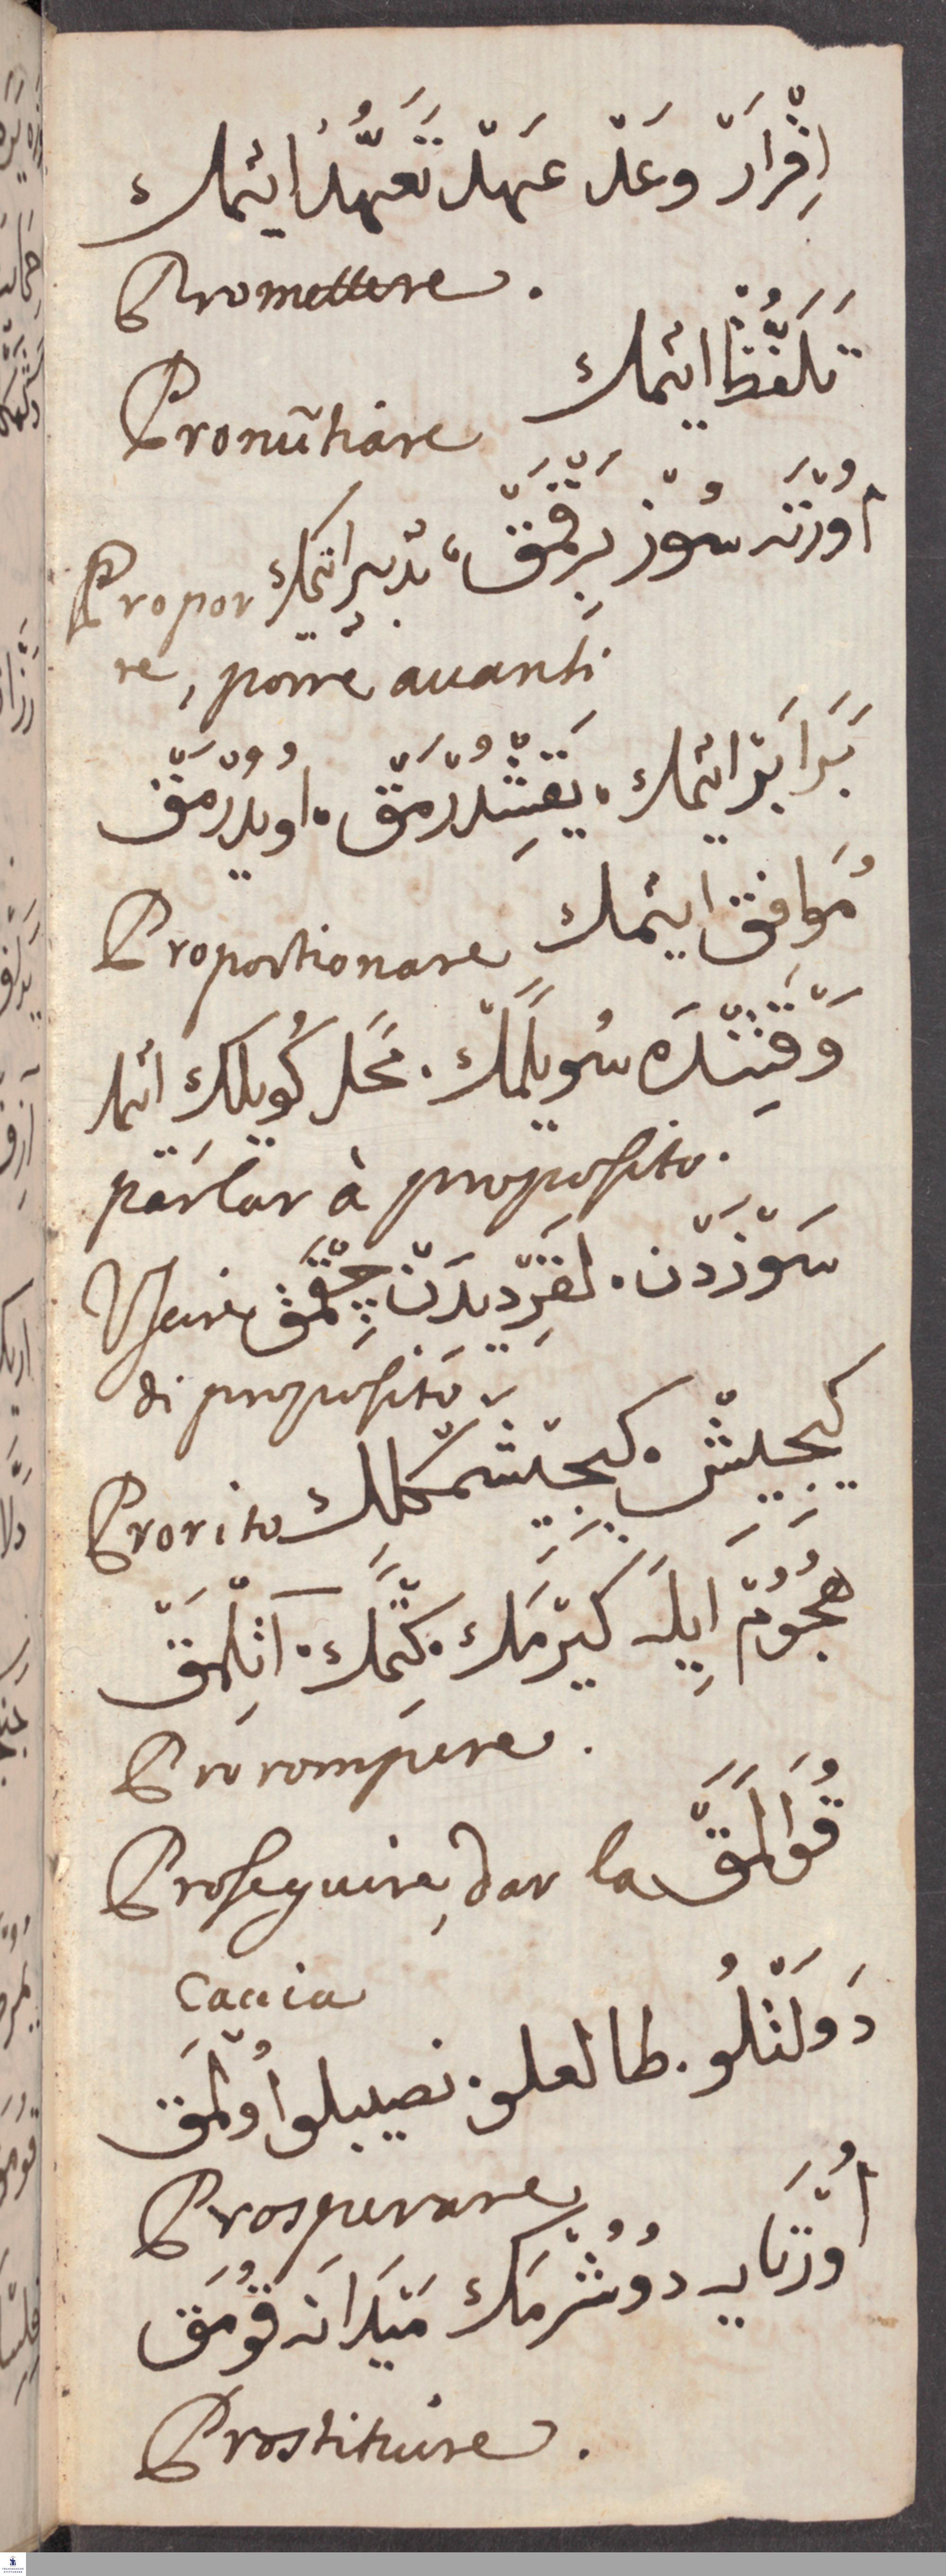 اِقْرَارْ وعَدْ عَهَدْ تَعَهُّدْ ايتمك
Promettere.
تَلَفُّظْ ايتمك
Pronũtiare
اُورْتَيه سُوزْ بِرَقْمَقْ، تدبير اتمك Propor
re, porre auanti
بَرَابَرْ ايتمك. يَقِشْدُرْمَقْ. اويْدُرْمَقْ
مُوافِق ايتمك Proportionare
وَقْتِنْدَه سُويلَمَكْ. مَحَل كُويلك اتمك
parlar à proposito.
سَوزْدَنْ. لَقِرْديدَنْ چِقْمَق Vscire
di proposito.
كيجِيِشْ. كيجِيشْمكلك Prorito
هُجُومْ اِيلَه كيرْمَك. كِتْمَك. آتِلْمَقْ
Prorompere.
قُوَالَمَقْ Proseguire, dar la
Caccia
دَولَتْلُو. طالعلو. نصيبلو اُولْمَق
Prosperare
اُورْتَايه دوُشُرْمَك مَيْدَانَه قُومَق
Prostituire.